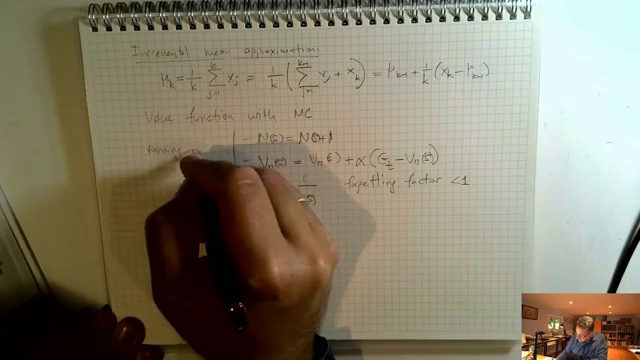 Incremental mean approximation:
μ_k = 1/k ∑_{j=1}^{k} x_j = 1/k ( ∑_{j=1}^{k-1} x_j + x_k ) = μ_{k-1} + 1/k ( x_k − μ_{k-1} )
Value function with MC
− N(s) = N(s)+1
running
− V_π(s) = V_π(s) + α ( G_t − V_π(s) )
1 forgetting factor <1